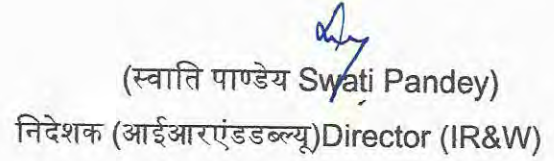 (स्वाति पाण्डेय Swati Pandey)
निदेशक (आईआरएंडडब्ल्यू)Director (IR&W)